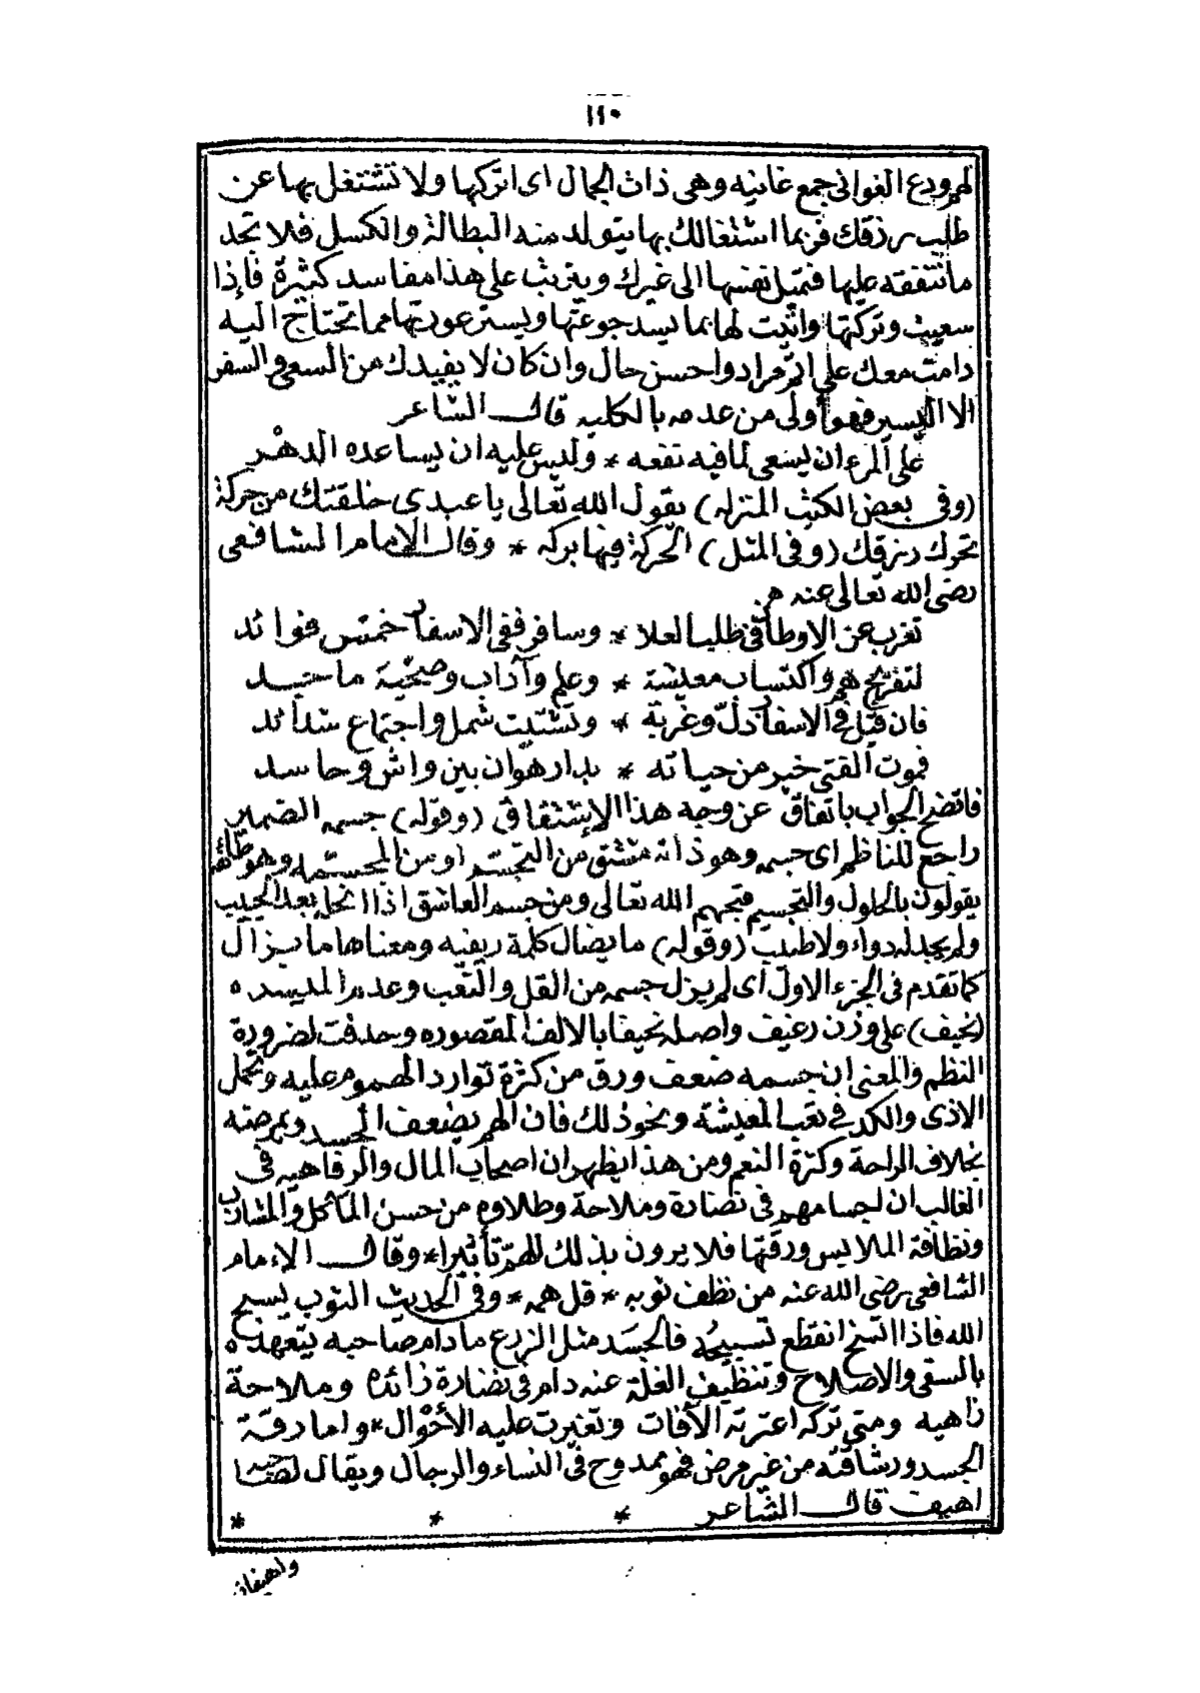 ١١٠
لهم ودع الغوانى جمع غانيه وهى ذات الجمال اى اتركها ولا تشتغل بها عن
طلب رزقك فربما اشتغالك بها يتولد منه البطالة والكسل فلا تجد
ما تنفقه عليها فتميل نفسها الى غيرك ويترتب على هذا مفاسد كثيرة فإذا
سعيت وتركتها واتيت لها بما يسد جوعتها ويستر عورتها مما تحتاج اليه
دامت معك على اتم مراد واحسن حال وان كان لا يفيدك من السعى والسفر
الا اليسير فهو أولى من عدمه بالكليه قال الشاعر
على المرء ان يسعى لما فيه نفعه * وليس عليه ان يساعده الدهر
(وفى بعض الكتب المنزله) يقول الله تعالى يا عبدى خلقتك من حركة
تحرك نرزقك (وفى المثل) الحركة فيها بركه * وقال الإمام الشافعى
رضى الله تعالى عنه
تغرب عن الاوطان فى طلب العلا * وسافر ففى الاسفار خمس فوائد
لتفريج هم واكتساب معيشة * وعلم وآداب وصحبة ماجد
فان قيل فى الاسفار ذل وغربة * وتشتيت شمل واجتماع شدائد
فموت الفتى خير من حياته * بدار هوان بين واش وحاسد
فاتضح الجواب باتفاق عن وجه هذا الإشتقاق (وقوله) جسمه الضمير
راجع للناظم اى جسمه وهو ذاته مشتق من التجسم او من المجسمه وهم طائفة
يقولون بالحلول والتجسيم قبحهم الله تعالى ومن جسم العاشق اذا انحله بعد الحبيب
ولم يجد له دواء ولا طبيب (وقوله) ما يضال كلمة ريفيه ومعناها ما يزال
كما تقدم فى الجزء الاول اى لم يزل جسمه من القل والتعب وعدم الميسره
(نحيف) على وزن رغيف واصله نحيفا بالالف المقصوره وحذفت لضرورة
النظم والمعنى ان جسمه ضعف ورق من كثرة توارد الهموم عليه وتحمل
الاذى والكد فى تعب المعيشة ونحو ذلك فان الهم يضعف الجسد ويمرضه
بخلاف الراحة وكثرة النعم ومن هذا يظهر ان اصحاب المال والرفاهيه فى
الغالب ان اجسامهم فى نضارة وملاحة وطلاوه من حسن المآكل والمشارب
ونظافة الملابس ورقتها فلا يرون بذلك للهم تأثيرا * وقال الإمام
الشافعى رضى الله عنه من نظف ثوبه * قل همه * وفى الحديث الثوب يسبح
الله فاذا اتسخ انقطع تسبيحه فالجسد مثل الزرع ما دام صاحبه يتعهده
بالسقى والاصلاح وتنظيف الغلة عنه دام فى نضارة زائده وملاحة
زاهيه ومتى تركه اعترته الآفات وتغيرت عليه الأحوال * واما رقة
الجسد ورشاقته من غير مرض فهو ممدوح فى النساء والرجال ويقال لصاحبه
اهيف قال الشاعر * * *
واهيفان